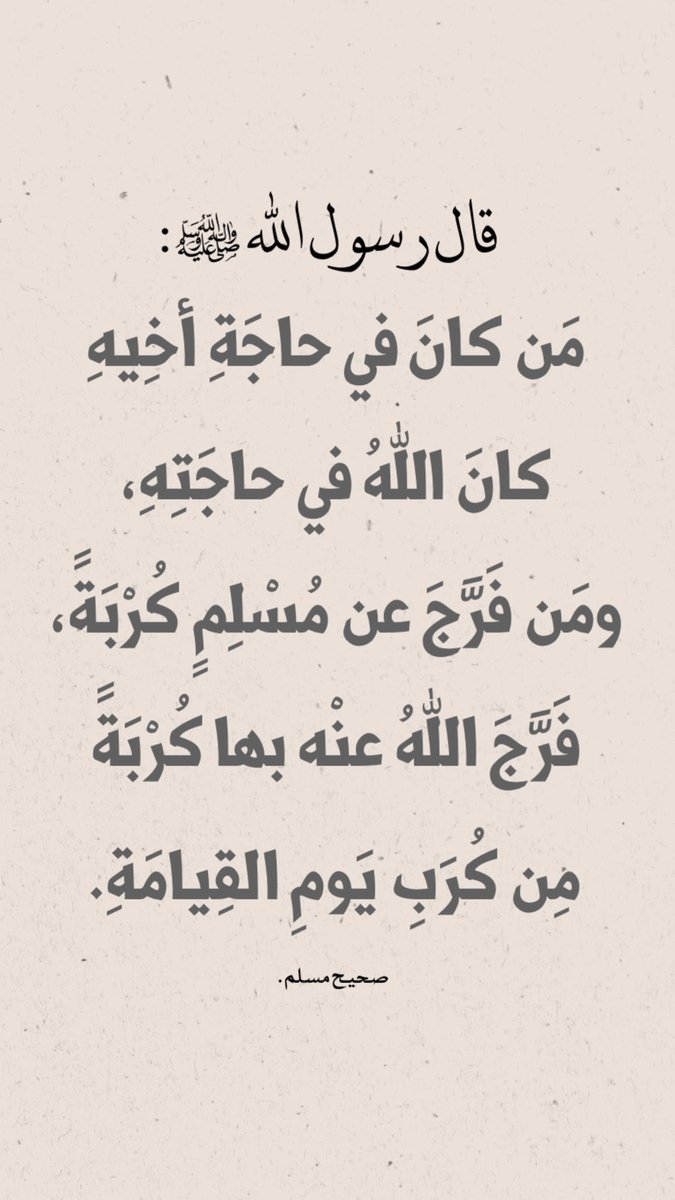 قال رسول الله ﷺ:
مَن كانَ في حاجَةِ أخِيهِ
كانَ اللَّهُ في حاجَتِهِ،
ومَن فَرَّجَ عن مُسْلِمٍ كُرْبَةً،
فَرَّجَ اللَّهُ عنْه بها كُرْبَةً
مِن كُرَبِ يَومِ القِيامَةِ.
صحيح مسلم.